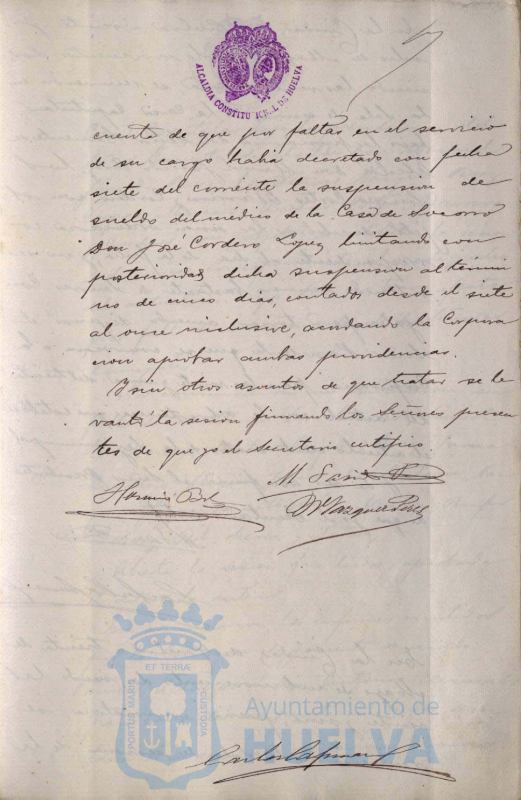 ALCALDIA CONSTITUCIONAL DE HUELVA
cuenta de que por faltas en el servicio
de su cargo habia decretado con fecha
siete del corriente la suspension de
sueldo del médico de la Casa de Socorro
Don José Cordero Lopez limitando con
posterioridad dicha suspension al térmi
no de cinco dias, contados desde el siete
al once inclusive, acordando la Corpora
cion aprobar ambas providencias.
Y sin otros asuntos de que tratar se le
vantó la sesion firmando los Señores presen
tes de que yo el Secretario certifico.
M.
Vazquez Perez
PORTUS MARIS
ET TERRÆ
CUSTODIA
Ayuntamiento de
HUELVA